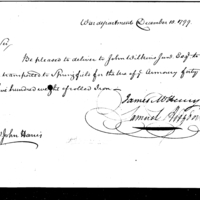 War department December 10. 1799.
Sir,
Be pleased to deliver to John Wilkins Junr Esqr to
be transported to Springfield for the use of ye Armoury forty
five hundred weight of rolled Iron —
James McHenry
Samuel Hodgdon
John Harris